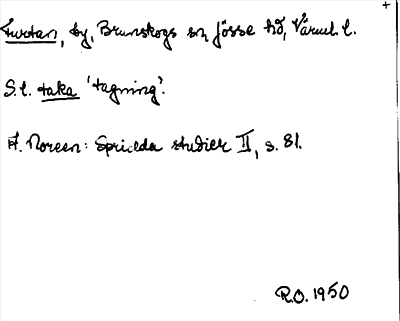 +
Furtan, by, Brunskogs sn, Jösse hd, Värml. l.
S.l. taka 'tagning'.
A. Noreen: Spridda studier II, s. 81.
R.O. 1950